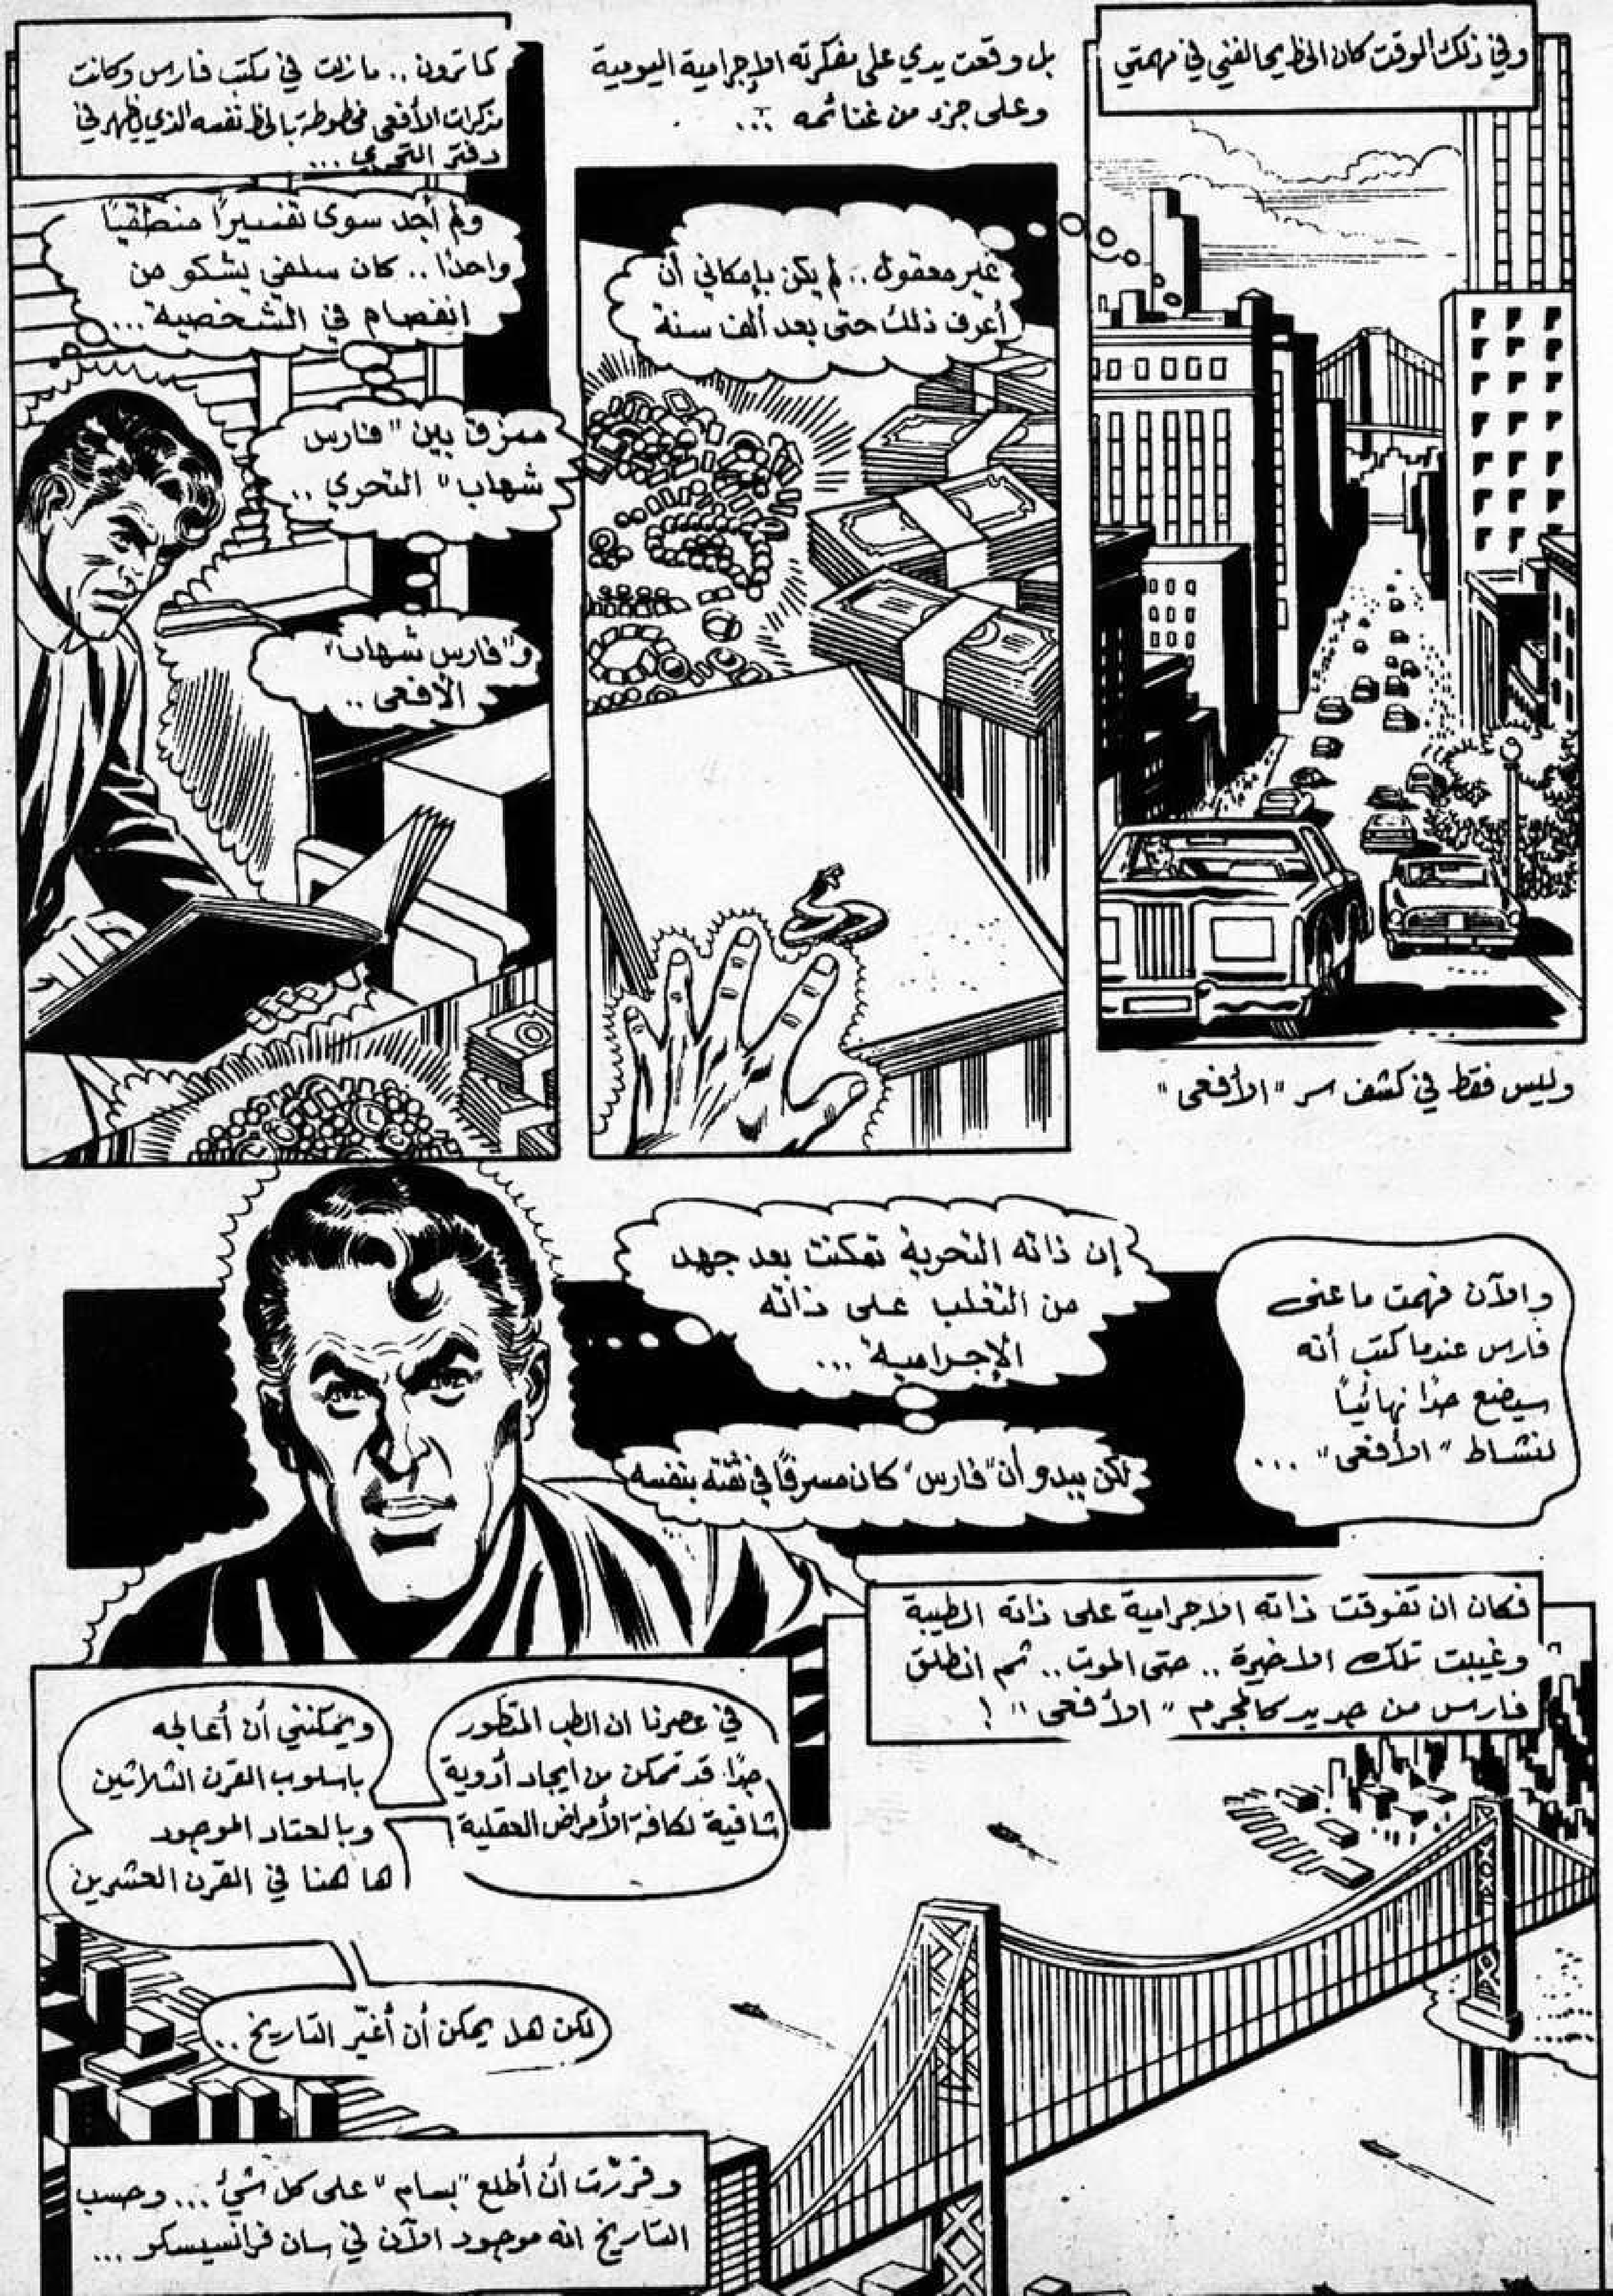 وفي ذلك الوقت كان الحظ يحالفني في مهمتي
وليس فقط في كشف سر "الأفعى"
بل وقعت يدي على مفكرته الإجرامية اليومية
وعلى جزء من غنائمه ...
غير معقول .. لم يكن بإمكاني أن
أعرف ذلك حتى بعد ألف سنة
كما ترون .. ما زلت في مكتب فارس وكانت
مذكرات الأفعى مخطوطة بالخط نفسه الذي يظهر في
دفتر التحري ...
ولم أجد سوى تفسيرًا منطقيًا
واحدًا .. كان سلفي يشكو من
انفصام في الشخصية ...
ممزق بين "فارس
شهاب" التحري ..
و"فارس شهاب"
الأفعى ..
والآن فهمت ما عنى
فارس عندما كتب أنه
سيضع حدًا نهائيًا
لنشاط "الأفعى" ...
إن ذاته التحرية تمكنت بعد جهد
من التغلب على ذاته
الإجرامية ...
لكن يبدو أن "فارس" كان مسرفًا في ثقته بنفسه
فكان ان تفوقت ذاته الاجرامية على ذاته الطيبة
وغيبت تلك الاخيرة .. حتى الموت .. ثم انطلق
فارس من جديد كالمجرم "الأفعى" !
في عصرنا ان الطب المتطور
جدًا قد تمكن من ايجاد أدوية
شافية لكافة الأمراض العقلية
ويمكنني أن أعالجه
باسلوب القرن الثلاثين
وبالعتاد الموجود
ها هنا في القرن العشرين
لكن هل يمكن أن أغيّر التاريخ ..
وقررت أن أطلع "بسام" على كل شيء ... وحسب
التاريخ انه موجود الآن في سان فرانسيسكو ...